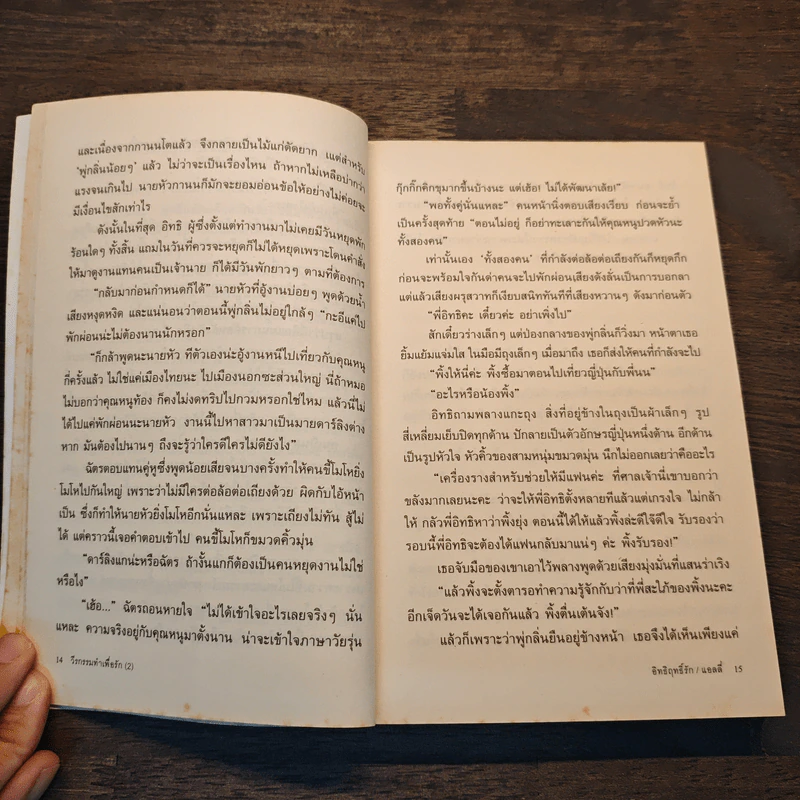 และเนื่องจากกานนโตแล้ว จึงกลายเป็นไม้แก่ดัดยาก แต่สำหรับ
'พู่กลิ่นน้อยๆ' แล้ว ไม่ว่าจะเป็นเรื่องไหน ถ้าหากไม่เหลือบ่ากว่า
แรงจนเกินไป นายหัวกานนก็มักจะยอมอ่อนข้อให้อย่างไม่ค่อยจะ
มีเงื่อนไขสักเท่าไร
ดังนั้นในที่สุด อิทธิ ผู้ซึ่งตั้งแต่ทำงานมาไม่เคยมีวันหยุดพัก
ร้อนใดๆ ทั้งสิ้น แถมในวันที่ควรจะหยุดก็ไม่ได้หยุดเพราะโดนคำสั่ง
ให้มาดูงานแทนคนเป็นเจ้านาย ก็ได้มีวันพักยาวๆ ตามที่ต้องการ
"กลับมาก่อนกำหนดก็ได้" นายหัวที่อู้งานบ่อยๆ พูดด้วยน้ำ
เสียงหงุดหงิด และแน่นอนว่าตอนนี้พู่กลิ่นไม่อยู่ใกล้ๆ "กะอีแค่ไป
พักผ่อนน่ะไม่ต้องนานนักหรอก"
"ก็กล้าพูดนะนายหัว ทีตัวเองน่ะอู้งานหนีไปเที่ยวกับคุณหนู
กี่ครั้งแล้ว ไม่ใช่แค่เมืองไทยนะ ไปเมืองนอกซะส่วนใหญ่ นี่ถ้าหมอ
ไม่บอกว่าคุณหนูท้อง ก็คงไม่งดทริปไปกวมหรอกใช่ไหม แล้วนี่ไม่
ได้ไปแค่พักผ่อนนะนายหัว งานนี้ไปหาสาวมาเป็นมายดาร์ลิงต่าง
หาก มันต้องไปนานๆ ถึงจะรู้ว่าใครดีใครไม่ดียังไง"
ฉัตรตอบแทนคู่หูซึ่งพูดน้อยเสียจนบางครั้งทำให้คนขี้โมโหยิ่ง
โมโหไปกันใหญ่ เพราะว่าไม่มีใครต่อล้อต่อเถียงด้วย ผิดกับไอ้หน้า
เป็น ซึ่งก็ทำให้นายหัวยิ่งโมโหอีกนั่นแหละ เพราะเถียงไม่ทัน สู้ไม่
ได้ แต่คราวนี้เจอคำตอบเข้าไป คนขี้โมโหก็ขมวดคิ้วมุ่น
"ดาร์ลิงแกน่ะหรือฉัตร ถ้างั้นแกก็ต้องเป็นคนหยุดงานไม่ใช่
หรือไง"
"เฮ้อ..." ฉัตรถอนหายใจ "ไม่ได้เข้าใจอะไรเลยจริงๆ นั่น
แหละ ความจริงอยู่กับคุณหนูมาตั้งนาน น่าจะเข้าใจภาษาวัยรุ่น
14 วีรกรรมทำเพื่อรัก (2)
กุ๊กกิ๊กคิกขุมากขึ้นบ้างนะ แต่เฮ้อ! ไม่ได้พัฒนาเล้ย!"
"พอทั้งคู่นั่นแหละ" คนหน้านิ่งตอบเสียงเรียบ ก่อนจะย้ำ
เป็นครั้งสุดท้าย "ตอนไม่อยู่ ก็อย่าทะเลาะกันให้คุณหนูปวดหัวนะ
ทั้งสองคน"
เท่านั้นเอง 'ทั้งสองคน' ที่กำลังต่อล้อต่อเถียงกันก็หยุดกึก
ก่อนจะพร้อมใจกันด่าคนจะไปพักผ่อนเสียงดังลั่นเป็นการบอกลา
แต่แล้วเสียงผรุสวาทก็เงียบสนิททันทีที่เสียงหวานๆ ดังมาก่อนตัว
"พี่อิทธิคะ เดี๋ยวค่ะ อย่าเพิ่งไป"
สักเดี๋ยวร่างเล็กๆ แต่ป่องกลางของพู่กลิ่นก็วิ่งมา หน้าตาเธอ
ยิ้มแย้มแจ่มใส ในมือมีถุงเล็กๆ เมื่อมาถึง เธอก็ส่งให้คนที่กำลังจะไป
"พิ้งให้นี่ค่ะ พิ้งซื้อมาตอนไปเที่ยวญี่ปุ่นกับพี่นน"
"อะไรหรือน้องพิ้ง"
อิทธิถามพลางแกะถุง สิ่งที่อยู่ข้างในถุงเป็นผ้าเล็กๆ รูป
สี่เหลี่ยมเย็บปิดทุกด้าน ปักลายเป็นตัวอักษรญี่ปุ่นหนึ่งด้าน อีกด้าน
เป็นรูปหัวใจ หัวคิ้วของสามหนุ่มขมวดมุ่น นึกไม่ออกเลยว่าคืออะไร
"เครื่องรางสำหรับช่วยให้มีแฟนค่ะ ที่ศาลเจ้านี่เขาบอกว่า
ขลังมากเลยนะคะ ว่าจะให้พี่อิทธิตั้งหลายทีแล้วแต่เกรงใจ ไม่กล้า
ให้ กลัวพี่อิทธิหาว่าพิ้งยุ่ง ตอนนี้ได้ให้แล้วพิ้งล่ะดีใจ๊ดีใจ รับรองว่า
รอบนี้พี่อิทธิจะต้องได้แฟนกลับมาแน่ๆ ค่ะ พิ้งรับรอง!"
เธอจับมือของเขาเอาไว้พลางพูดด้วยเสียงมุ่งมั่นที่แสนร่าเริง
"แล้วพิ้งจะตั้งตารอทำความรู้จักกับว่าที่พี่สะใภ้ของพิ้งนะคะ
อีกเจ็ดวันจะได้เจอกันแล้ว พิ้งตื่นเต้นจัง!"
แล้วก็เพราะว่าพู่กลิ่นยืนอยู่ข้างหน้า เธอจึงได้เห็นเพียงแค่
อิทธิฤทธิ์รัก / แอลลี่ 15